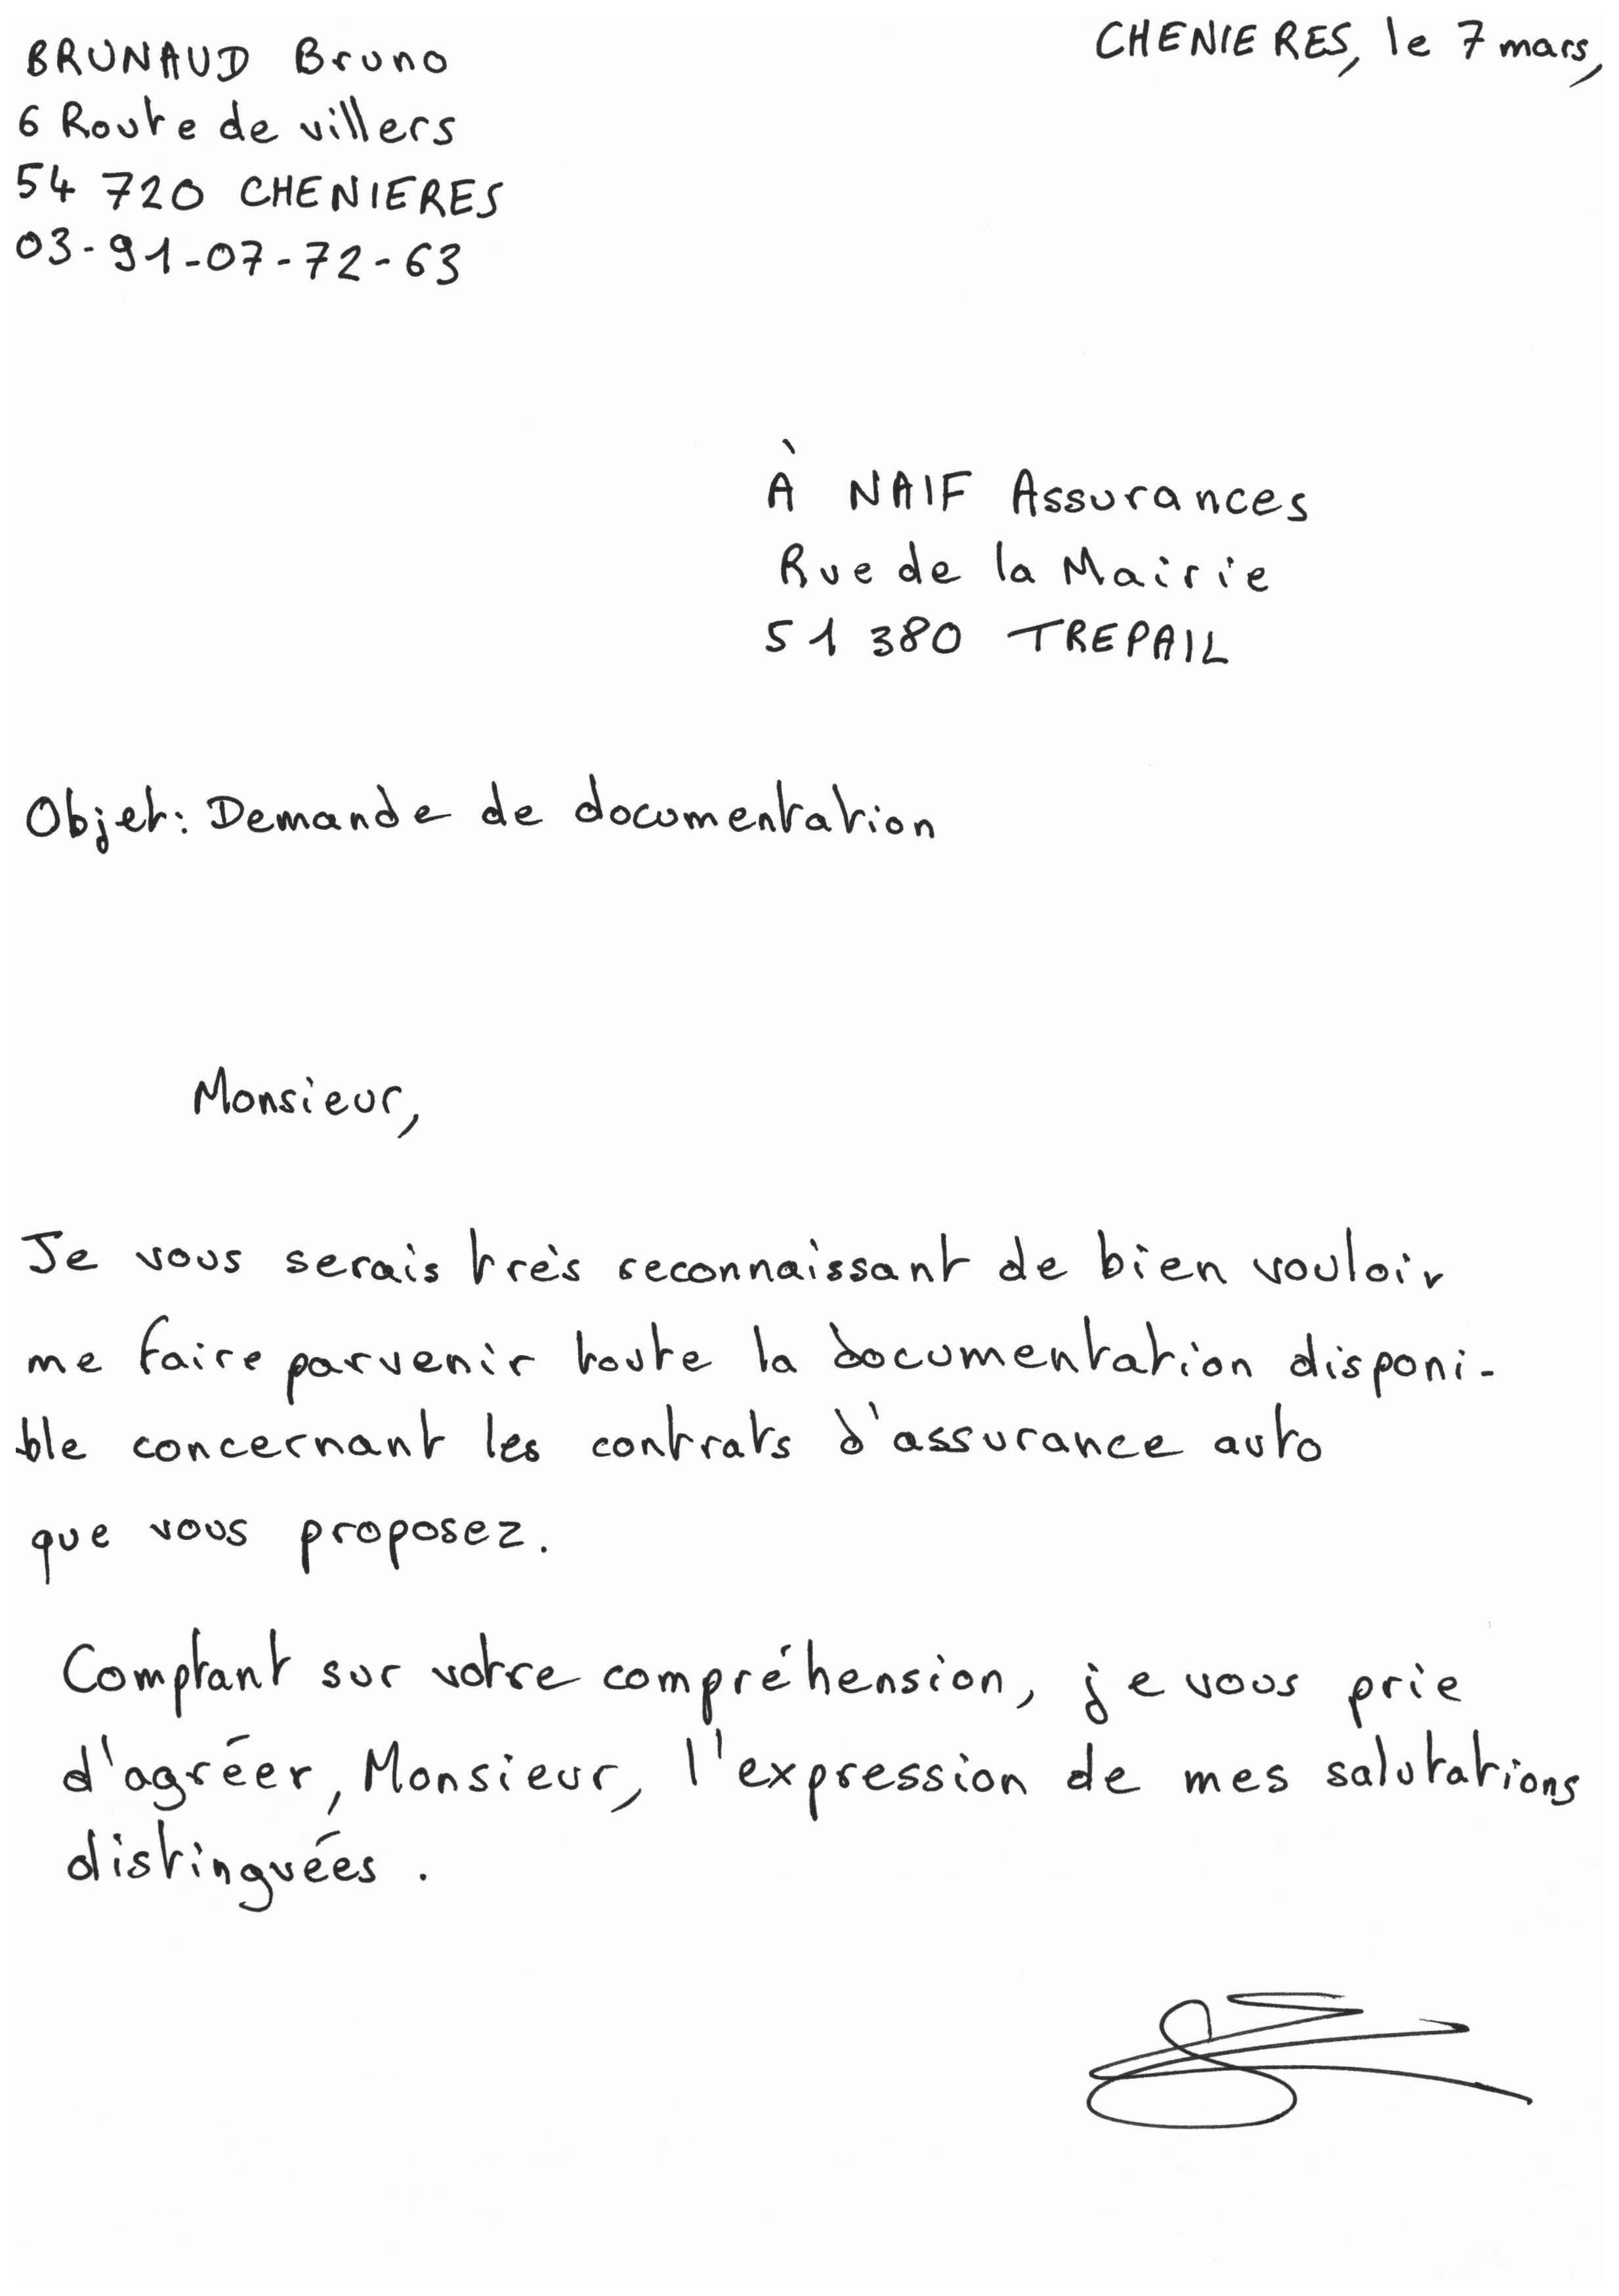 BRUNAUD Bruno
6 Route de villers
54 720 CHENIERES
03-91-07-72-63
CHENIERES, le 7 mars,
À NAIF Assurances
Rue de la Mairie
51 380 TREPAIL
Objet: Demande de documentation
Monsieur,
Je vous serais très reconnaissant de bien vouloir
me faire parvenir toute la documentation disponi-
ble concernant les contrats d'assurance auto
que vous proposez.
Comptant sur votre compréhension, je vous prie
d'agréer, Monsieur, l'expression de mes salutations
distinguées.